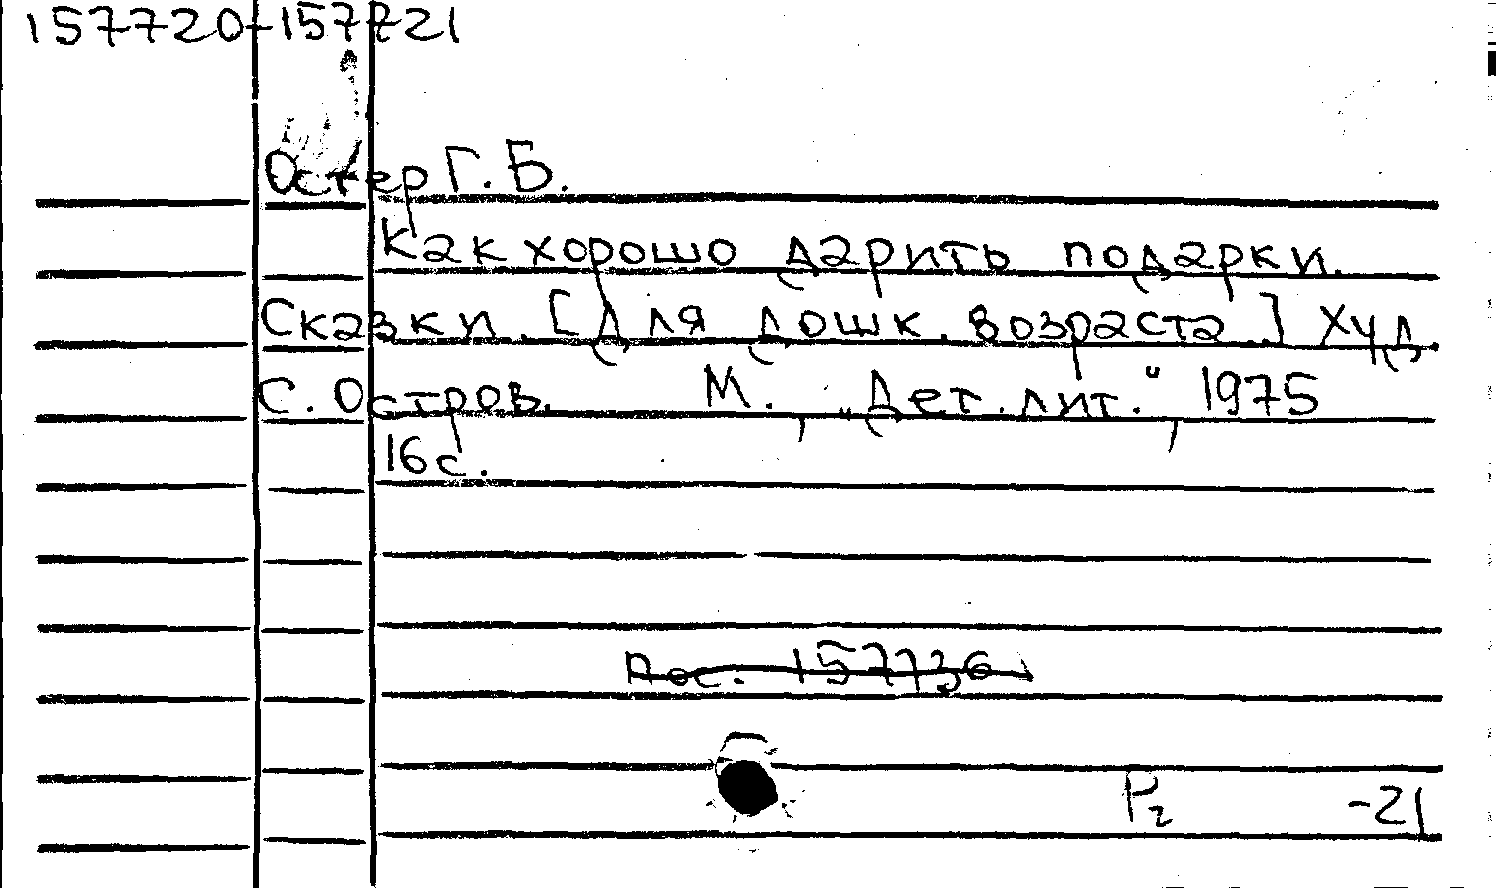 157720-157721
Остер Г. Б.
Как хорошо дарить подарки.
Сказки. [Для дошк. возраста.] Худ.
С. Остров. М., "Дет. лит.", 1975
16 с.
Рос. 157736
Р2 -21